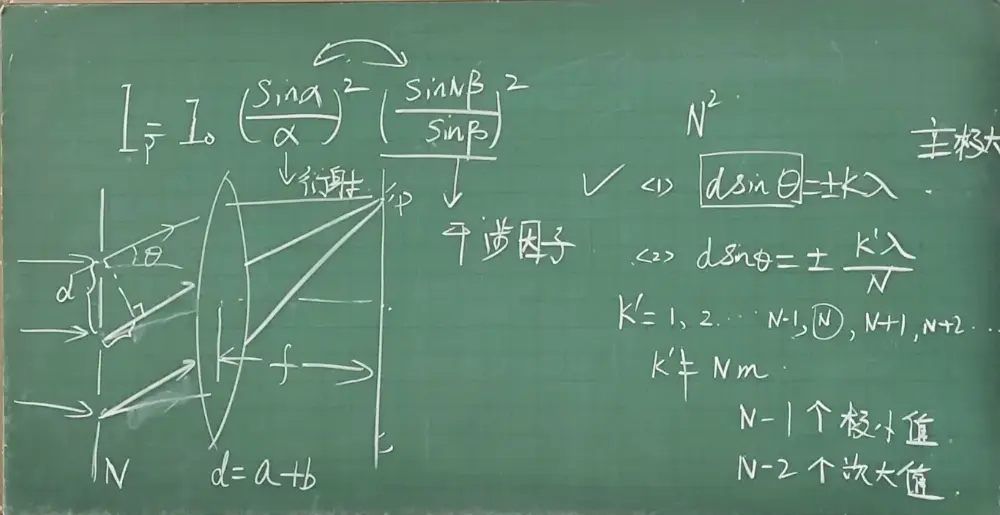 I_P = I_0 (sinα/α)^2 (sinNβ/sinβ)^2
衍射
干涉因子
P
θ
d
f
N
d=a+b
N^2
主极大
✓ <1> dsinθ=±kλ
<2> dsinθ=± k'λ/N
k'=1, 2... N-1, N, N+1, N+2...
k'≠Nm
N-1个极小值
N-2个次大值